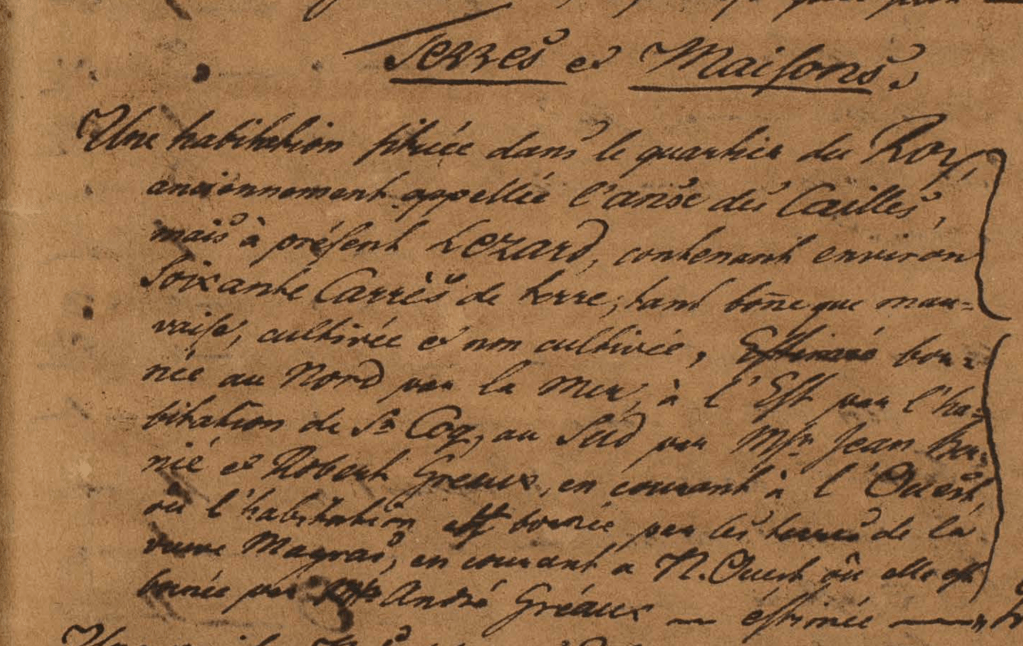 Terres et Maisons.
Une habitation sitüée dans le quartier du Roy,
anciennement appellée l'anse des Cailles,
mais à présent Lezard, contenant environ
soixante Carrés de terre, tant bone que mau=
vaise, cultivée et non cultivée, Estimée bor=
née au Nord par la Mer, à l'Est par l'ha=
bitation de Sr. Coq, au Sud par Msrs. Jean
nié et Robert Greaux, en courant à l'Ouest
où l'habitation est bornée par les terres de la
veuve Magras, en courant a N. Ouest où elle est
bornée par André Gréaux — estimée —